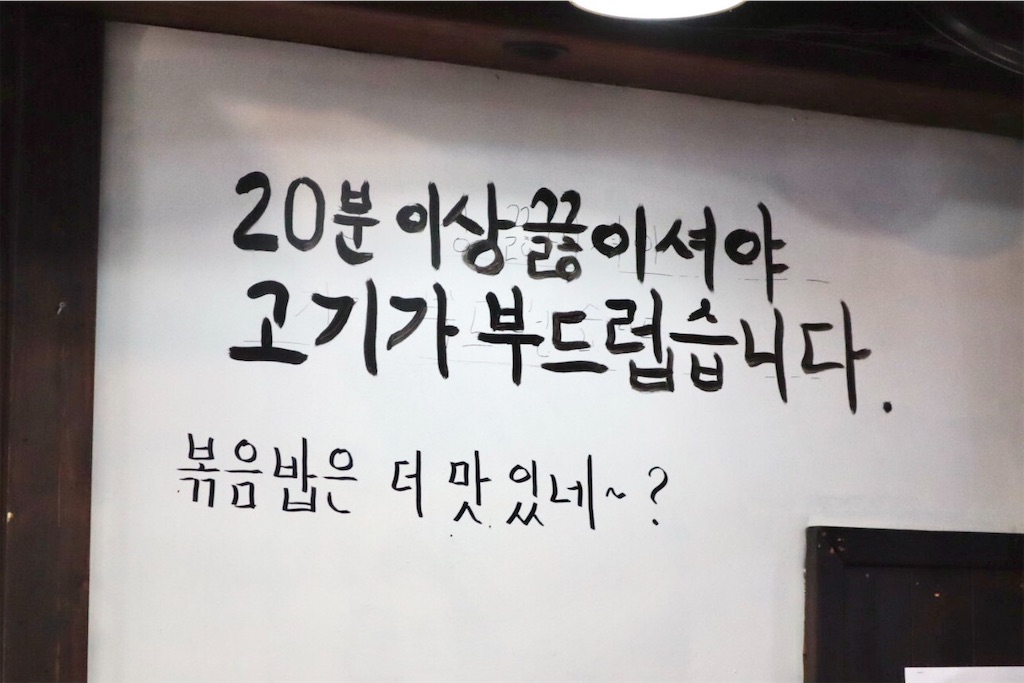 20분 이상 끓이셔야
고기가 부드럽습니다.
볶음밥은 더 맛있네~?